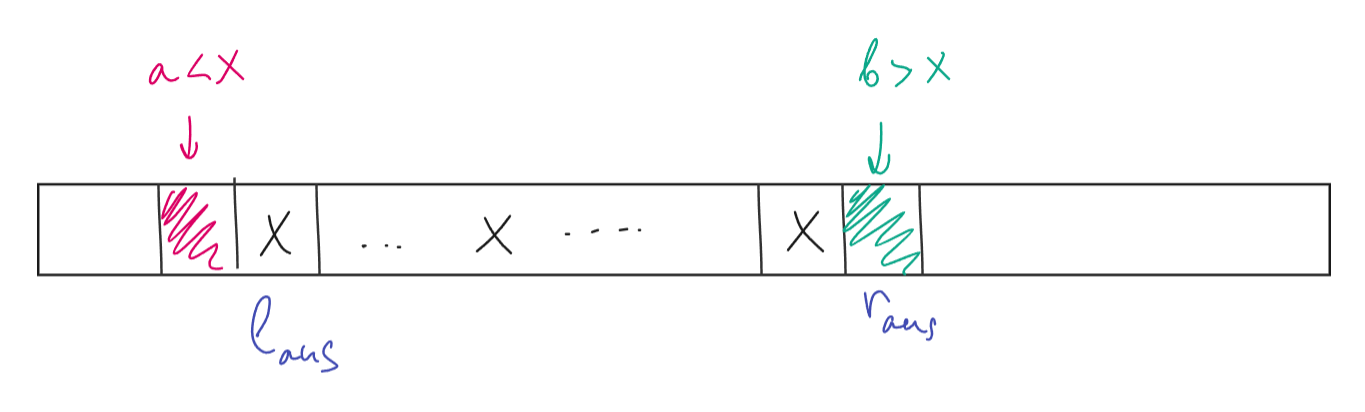 a < X
b > x
X ... X ..... X
l ans
r ans